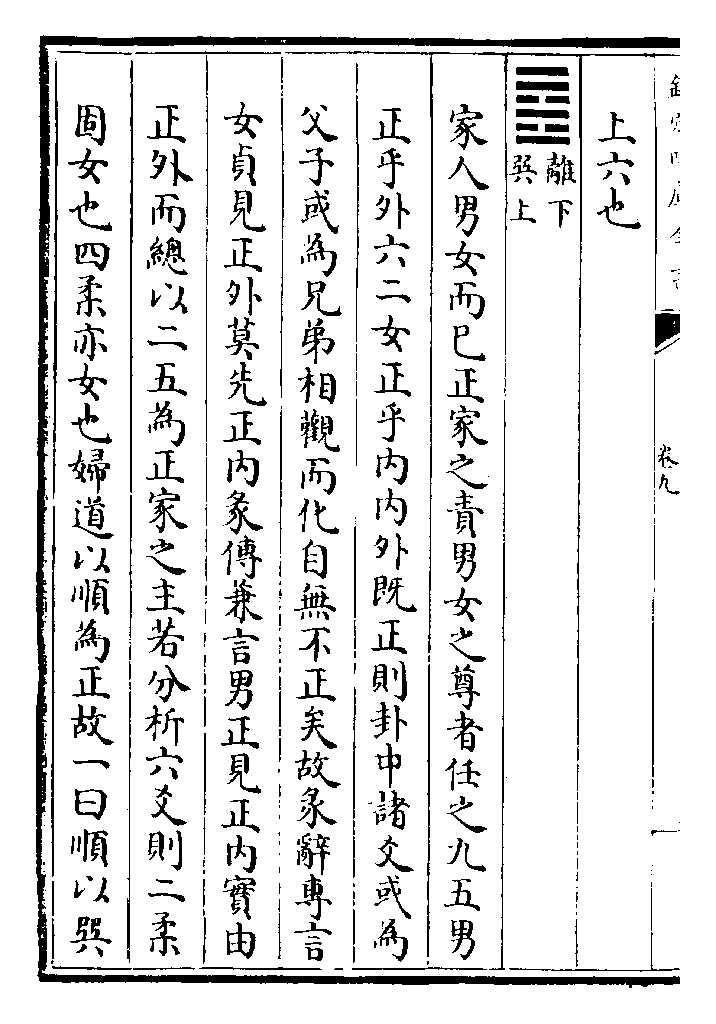 欽定四庫全書
卷九
上六也
䷤離下
巽上
家人男女而已正家之責男女之尊者任之九五男
正乎外六二女正乎内内外既正則卦中諸爻或為
父子或為兄弟相觀而化自無不正矣故彖辭專言
女貞見正外莫先正内彖傳兼言男正見正内實由
正外而總以二五為正家之主若分析六爻則二柔
固女也四柔亦女也婦道以順為正故一曰順以巽